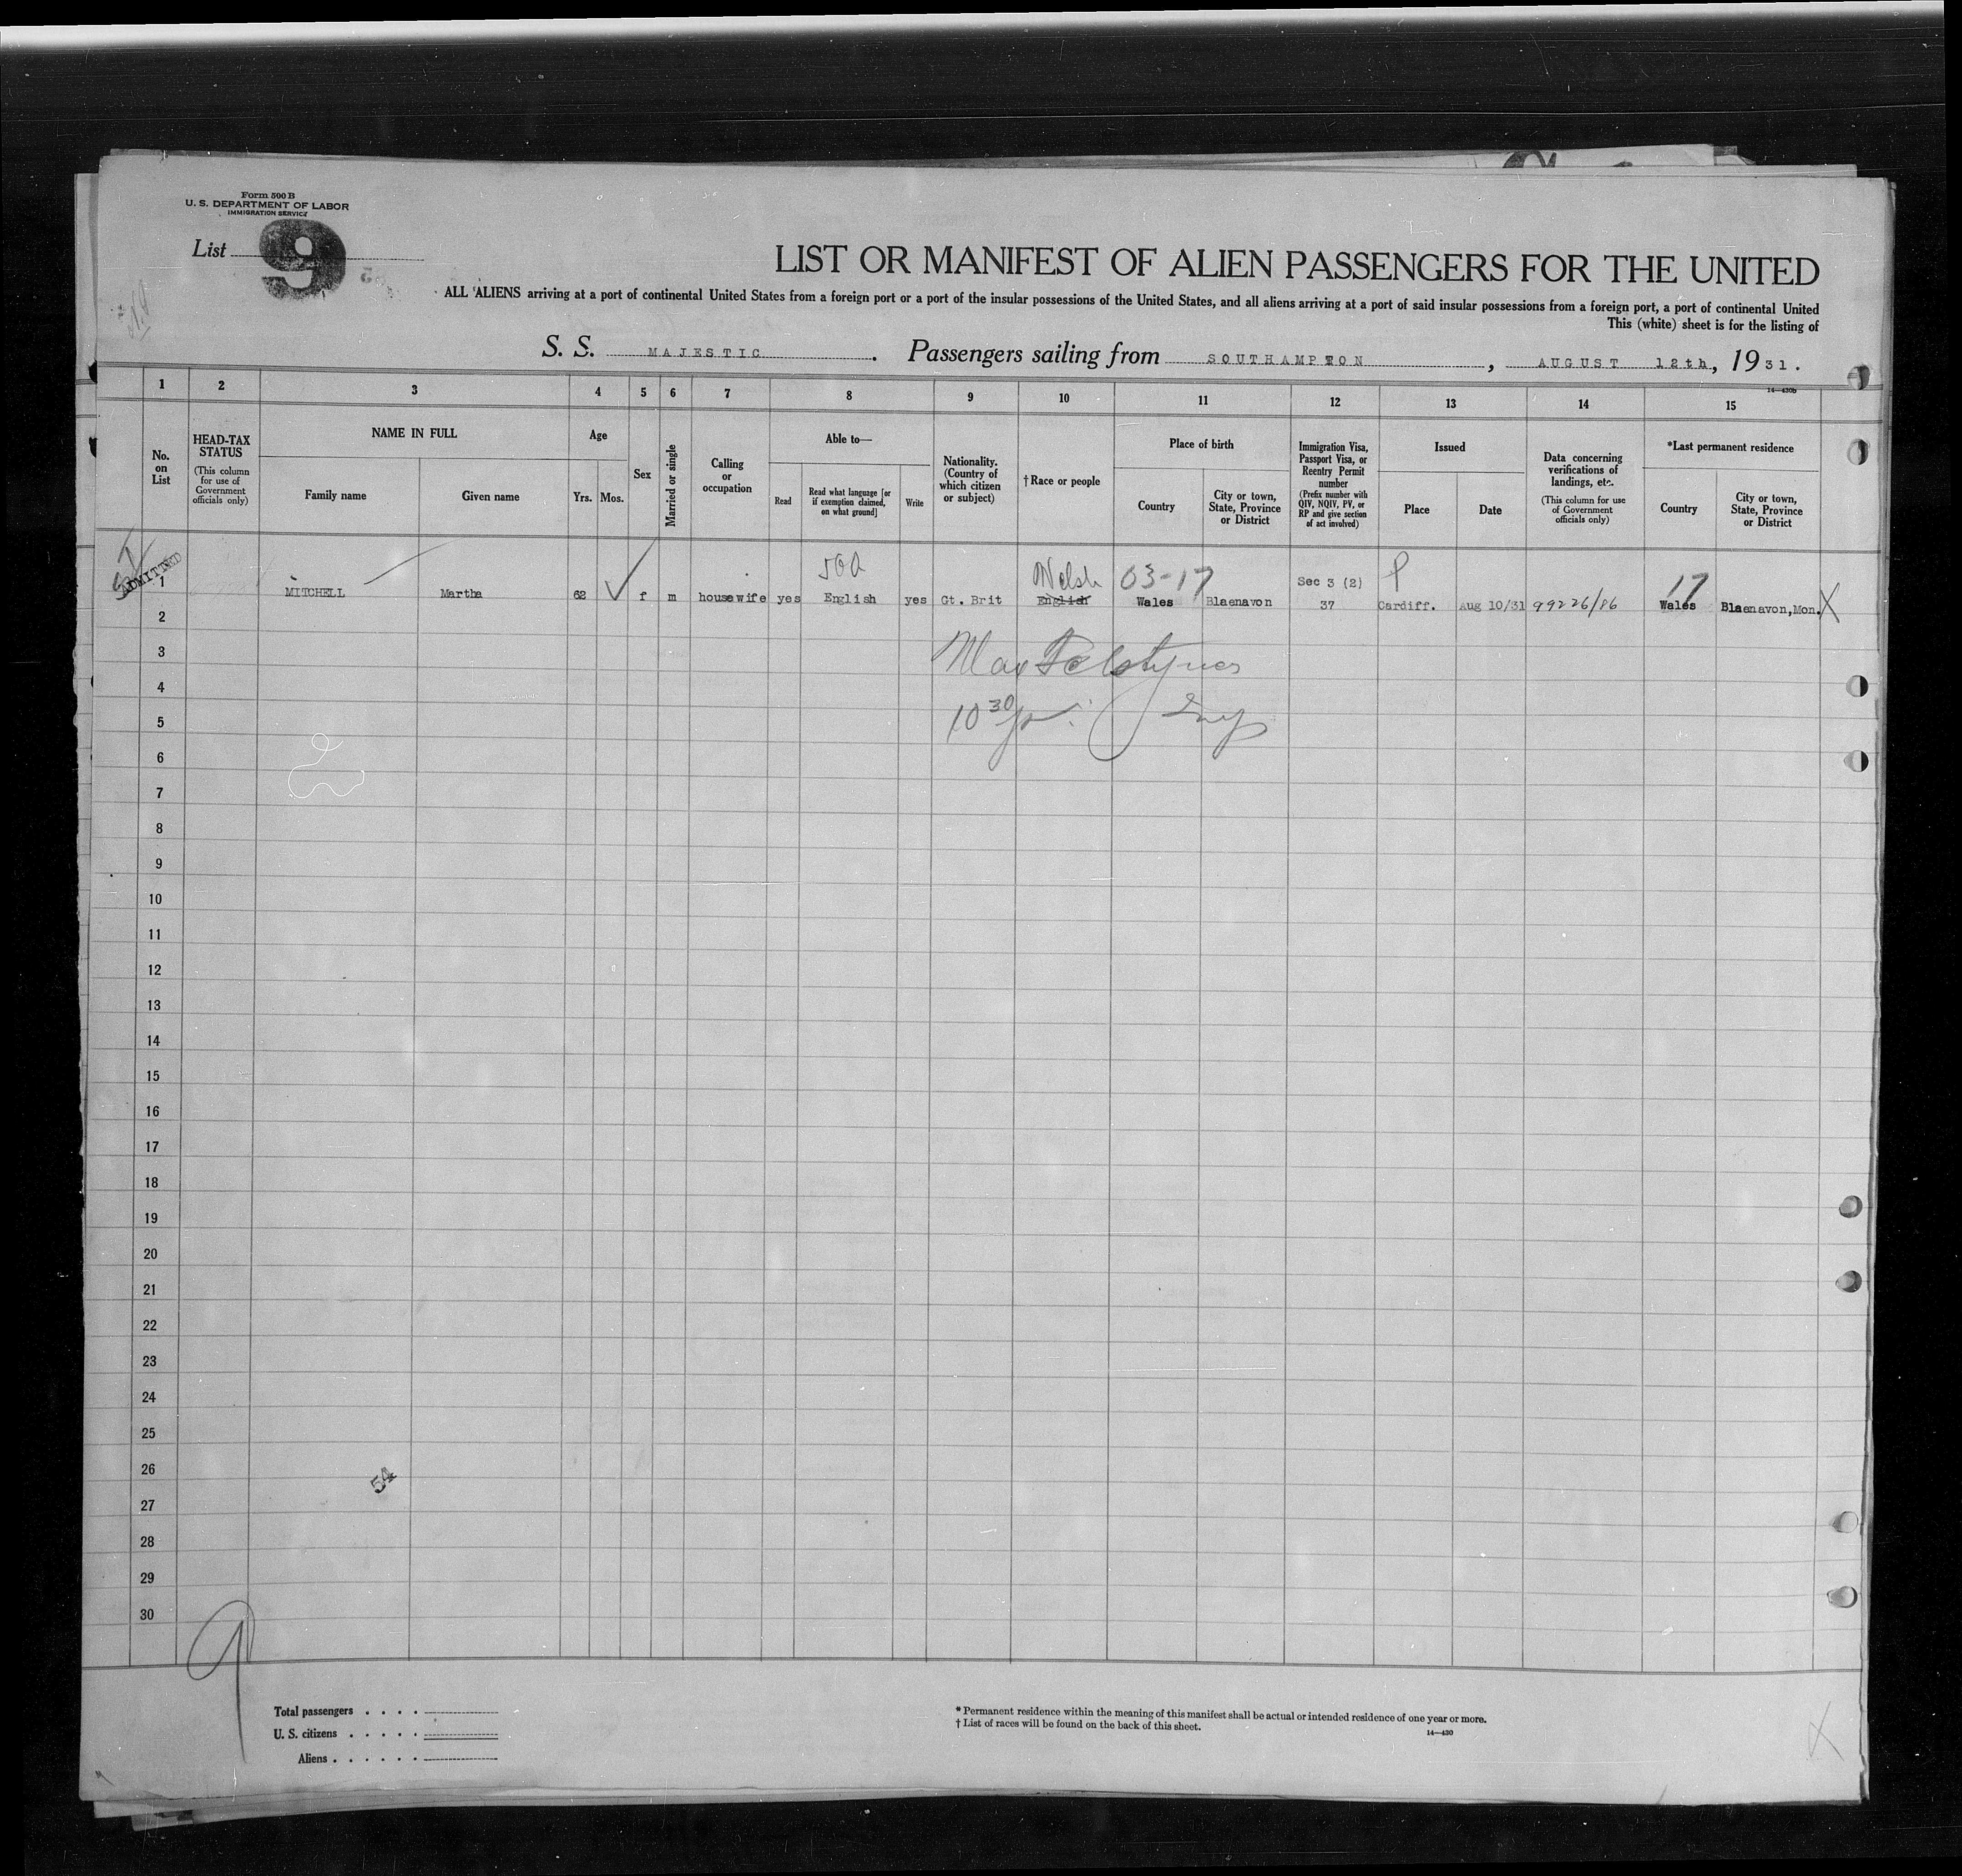 Form 500 B
U. S. DEPARTMENT OF LABOR
IMMIGRATION SERVICE
List 9
LIST OR MANIFEST OF ALIEN PASSENGERS FOR THE UNITED
ALL ALIENS arriving at a port of continental United States from a foreign port or a port of the insular possessions of the United States, and all aliens arriving at a port of said insular possessions from a foreign port, a port of continental United
This (white) sheet is for the listing of
S. S. MAJESTIC. Passengers sailing from SOUTHAMPTON, AUGUST 12th, 1931.
14—430b
1 2 3 4 5 6 7 8 9 10 11 12 13 14 15
No. on List
HEAD-TAX STATUS
(This column for use of Government officials only)
NAME IN FULL
Family name
Given name
Age
Yrs.
Mos.
Sex
Married or single
Calling or occupation
Able to—
Read
Read what language [or if exemption claimed, on what ground]
Write
Nationality. (Country of which citizen or subject)
†Race or people
Place of birth
Country
City or town, State, Province or District
Immigration Visa, Passport Visa, or Reentry Permit number
(Prefix number with QIV, NQIV, PV, or RP and give section of act involved)
Issued
Place
Date
Data concerning verifications of landings, etc.
(This column for use of Government officials only)
*Last permanent residence
Country
City or town, State, Province or District
ADMITTED
500 Welsh 03-17 Sec 3 (2) P 17
1 MITCHELL Martha 62 f m housewife yes English yes Gt. Brit English Wales Blaenavon 37 Cardiff. Aug 10/31 99226/86 Wales Blaenavon, Mon. X
2
3
4
5
10 30
6
7
8
9
10
11
12
13
14
15
16
17
18
19
20
21
22
23
24
25
26
54
27
28
29
30
9
Total passengers . . . .
U. S. citizens . . . . .
Aliens . . . . . .
* Permanent residence within the meaning of this manifest shall be actual or intended residence of one year or more.
† List of races will be found on the back of this sheet.
14—430
X